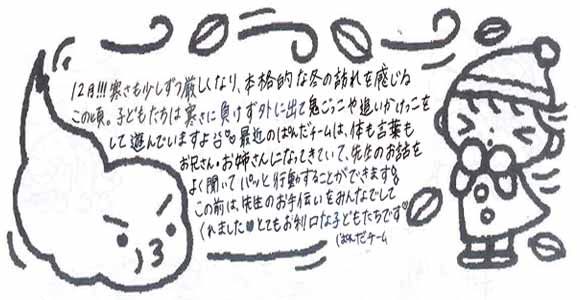 12月!!! 寒さも少しずつ厳しくなり、本格的な冬の訪れを感じる
この頃。子どもたちは寒さに負けず外に出て鬼ごっこや追いかけっこを
して遊んでいますよ♡ 最近のぱんだチームは、体も言葉も
お兄さん・お姉さんになってきていて、先生のお話を
よく聞いてパッと行動することができます♪
この前は、先生のお手伝いをみんなでして
くれました♥とてもお利口な子どもたちです♡
ぱんだチーム